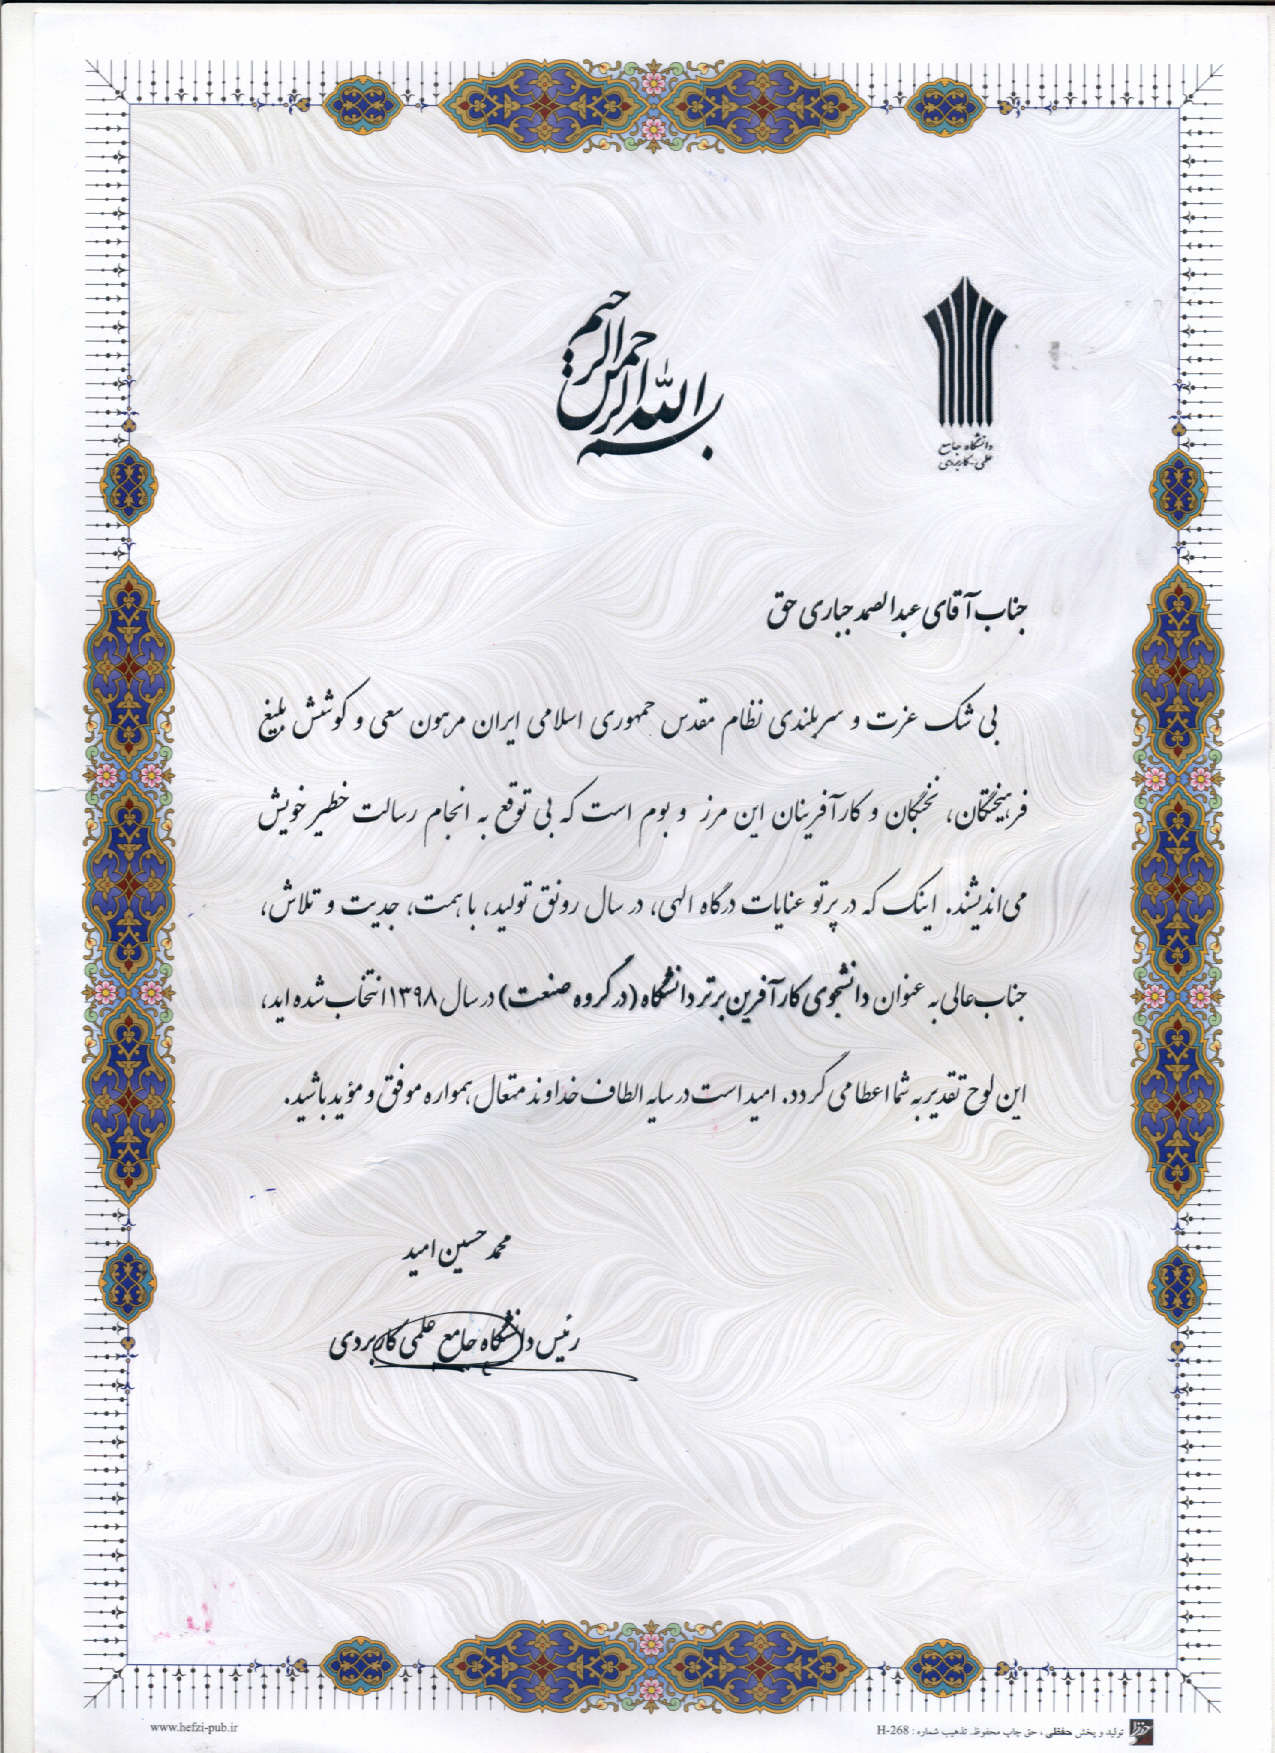 بسم الله الرحمن الرحیم
دانشگاه جامع
علمی-کاربردی
جناب آقای عبدالصمد جباری حق
بی شک عزت و سربلندی نظام مقدس جمهوری اسلامی ایران مرهون سعی و کوشش بلیغ
فرهیختگان، نخبگان و کارآفرینان این مرز و بوم است که بی توقع به انجام رسالت خطیر خویش
می‌اندیشند. اینک که در پرتو عنایات درگاه الهی، در سال رونق تولید، با همت، جدیت و تلاش،
جناب عالی به عنوان دانشجوی کارآفرین برتر دانشگاه (در گروه صنعت) در سال ۱۳۹۸ انتخاب شده اید،
این لوح تقدیر به شما اعطا می گردد. امید است در سایه الطاف خداوند متعال همواره موفق و مؤید باشید.
محمد حسین امید
رئیس دانشگاه جامع علمی کاربردی
www.hefzi-pub.ir
تولید و پخش حفظی ، حق چاپ محفوظ. تذهیب شماره : H-268